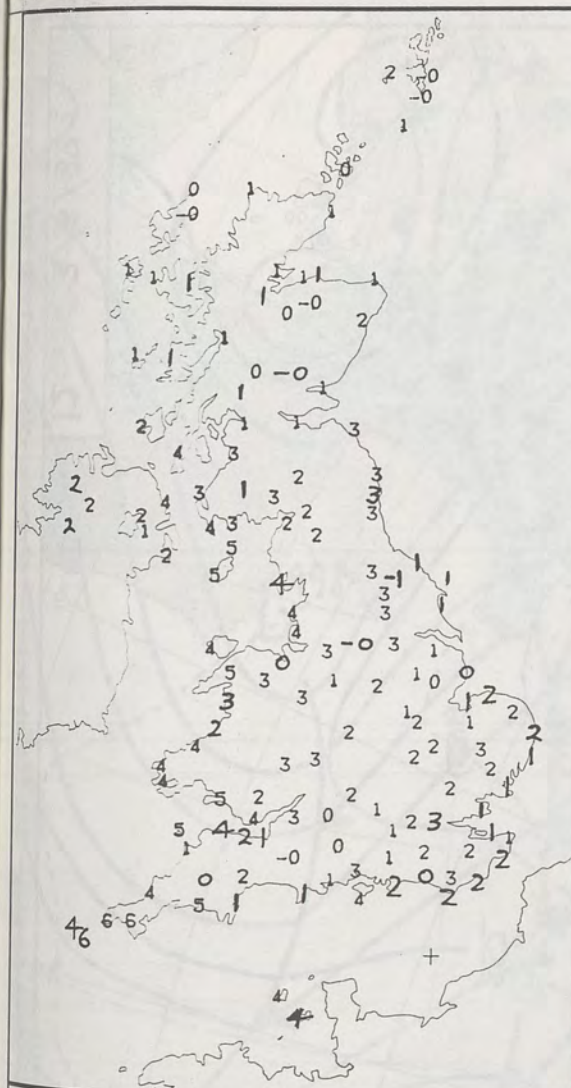 2 -0
-0
1
0
0 1
-0 1
1 1 1 1 1 1 1
1 0 -0
2
1 1 1
0 -0
1 1
2 1 1 3
4 3
2 2 3
2 4 3 1 3 3
2 2 4 3 2 2 3
1 2 2
5 1
5 4 3 -1 1
3
4 3 1
4
4 3 -0 3 1
0
5 3 1 2 1 0 0
3 3 1 2
2 1 2 1 2
4 2 2 2 3 2
4 3 3 2 1
4
5 2 2 2 1
4 3 0 1 2 3 1
5 4 2 1 1 1 1
1 0 2 2 2
-0 1
0 2 1 3 2 0 3 2
4 5 1 1 4 2 2
4 6 6 6
4
4